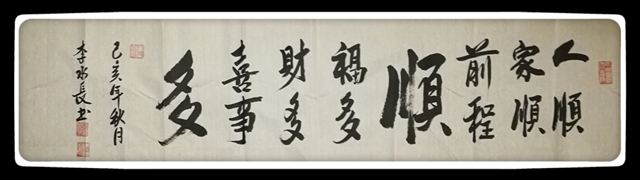 人順
家順
前程
順
福多
財多
喜事
多
己亥年秋月
李水長书